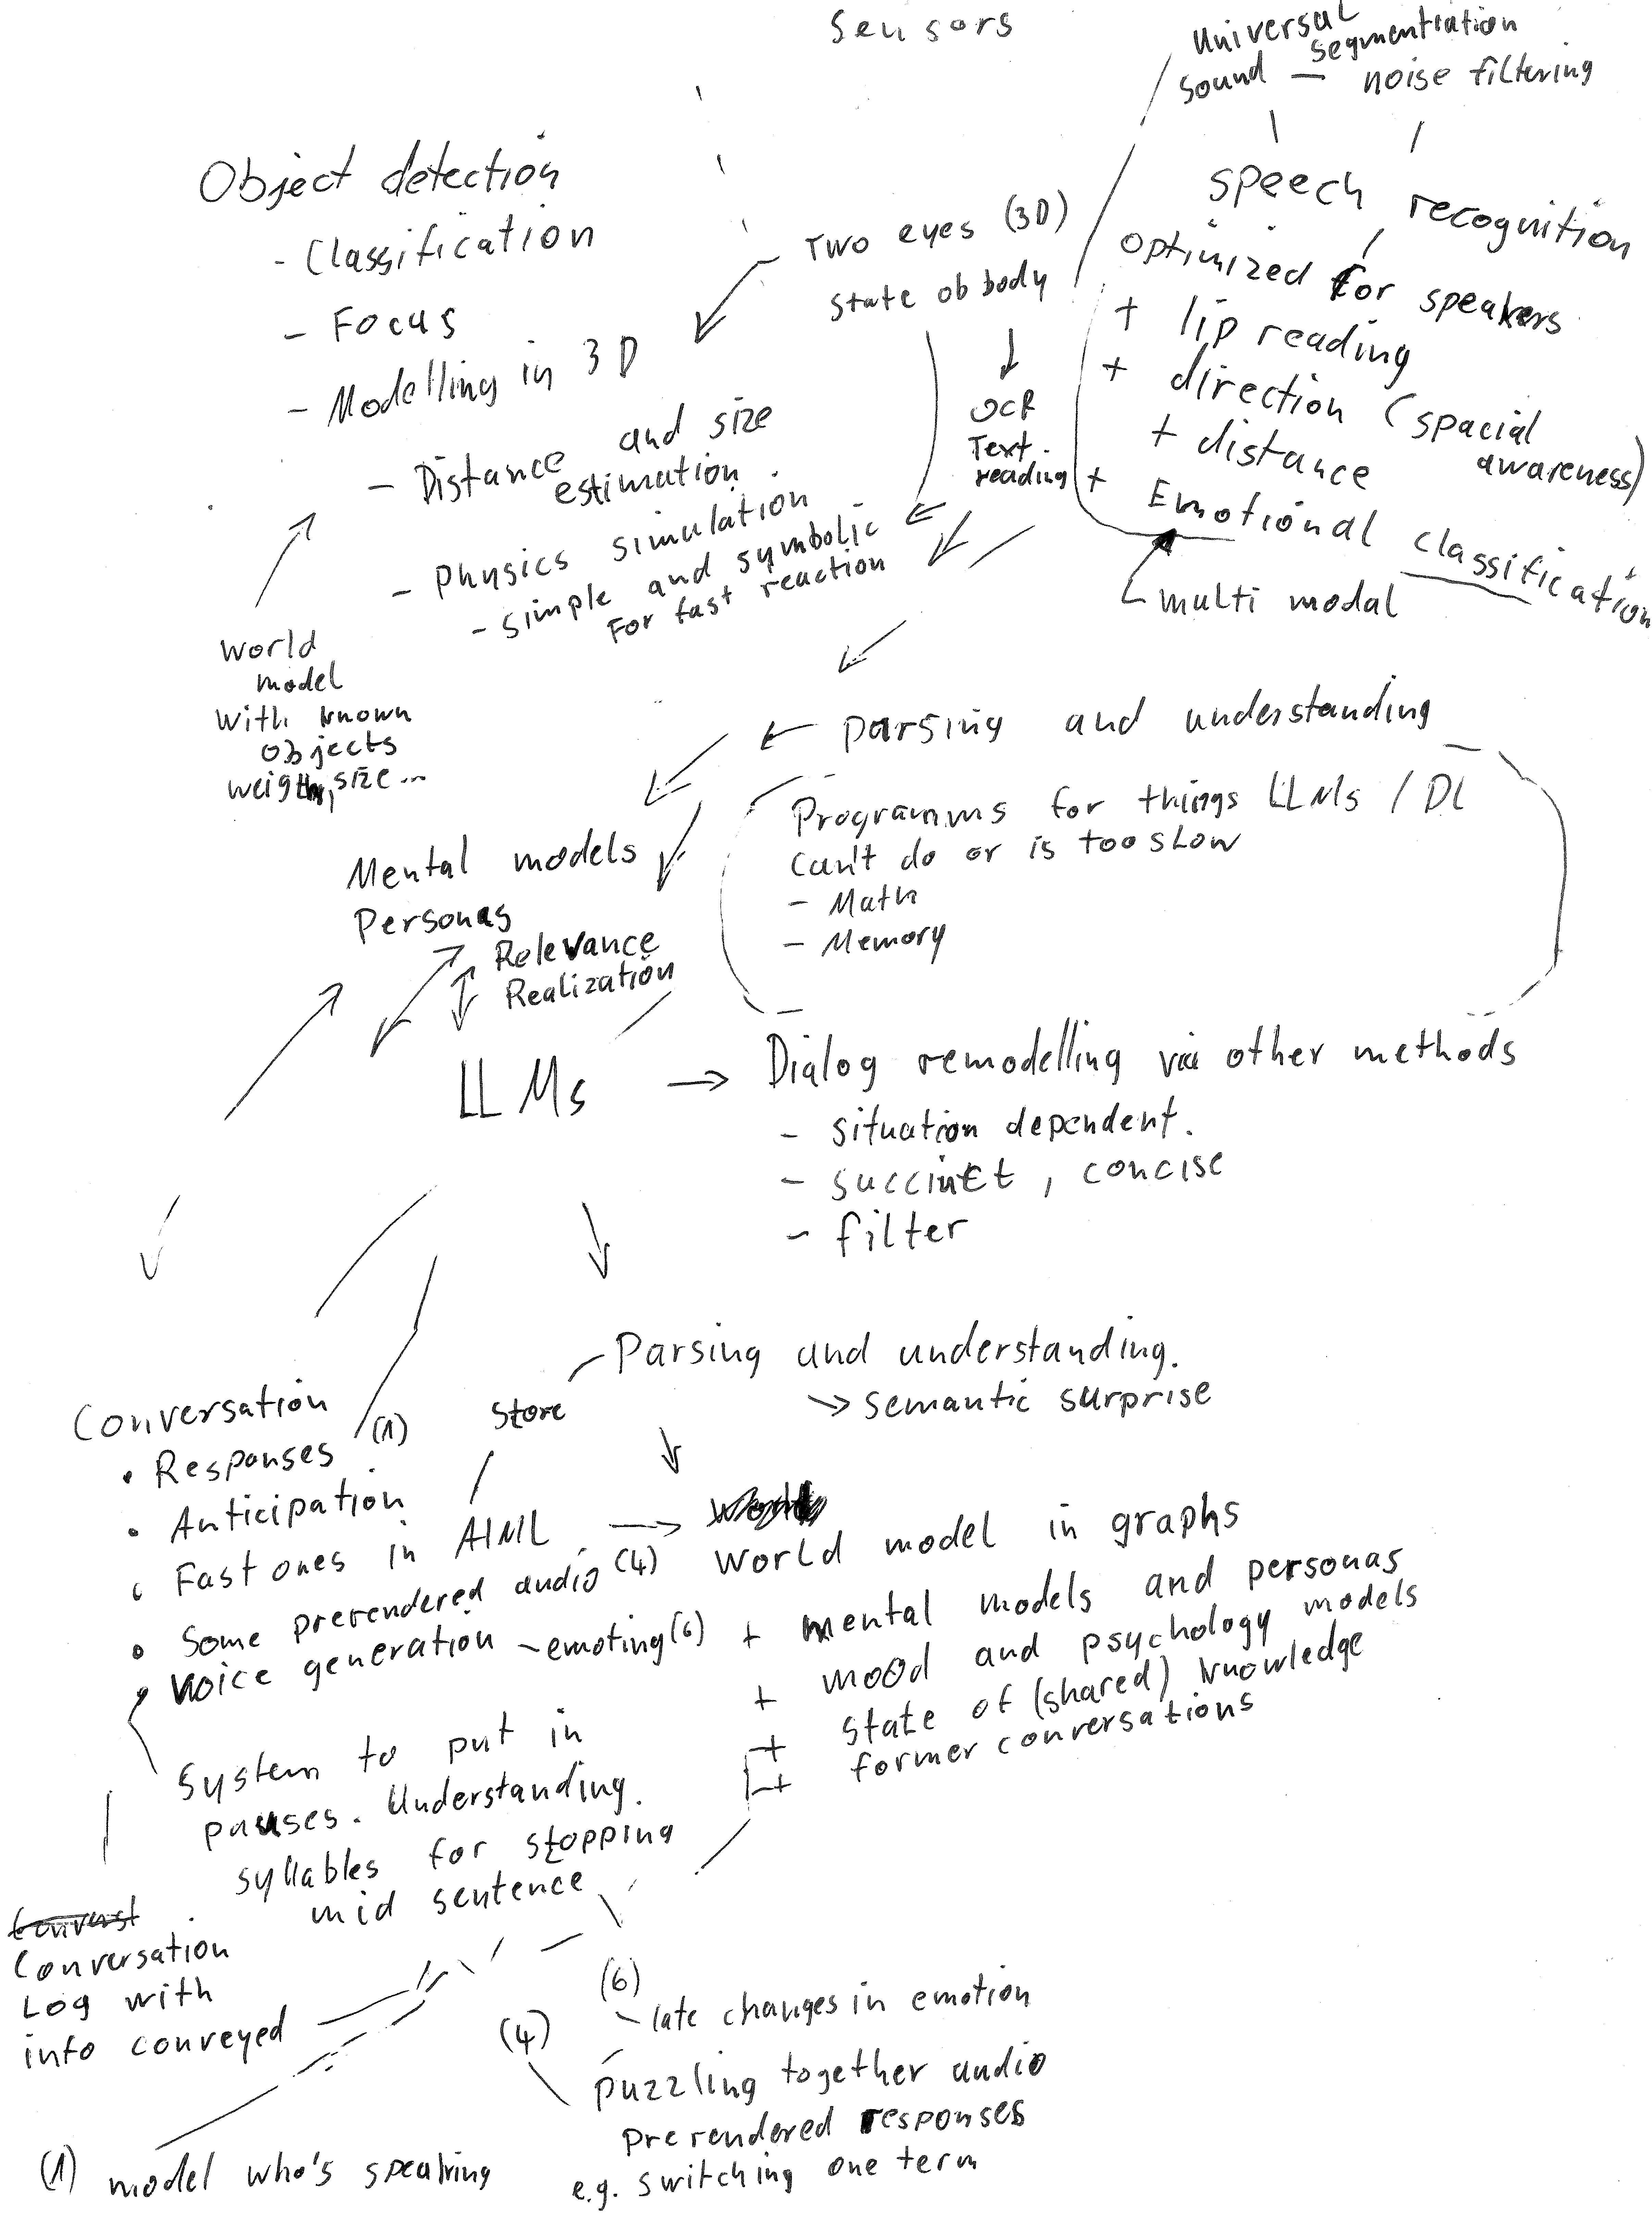 Sensors
Universal
Sound — segmentration
noise filtering
speech recognition
optimized for speakers
+ lip reading
+ direction (spacial
awareness)
+ distance
+ Emotional classification
multi modal
Object detection
- Classification
- Focus
- Modelling in 3D
- Distance and size
estimation
- Physics simulation
- simple and symbolic
For fast reaction
Two eyes (3D)
State ob body
OCR
Text
reading
World
model
With known
objects
weigth, size...
← parsing and understanding
Programms for things LLMs / DL
Can't do or is too slow
- Math
- Memory
Mental models
Personas
Relevance
Realization
LLMs → Dialog remodelling via other methods
- situation dependent.
- succinct, concise
- filter
Parsing and understanding.
→ semantic surprise
Store
Conversation
• Responses (1)
• Anticipation
• Fast ones in AIML →
• Some prerendered audio (4)
• Voice generation - emoting (6)
System to put in
pauses. Understanding.
syllables for stopping
mid sentence
World model in graphs
+ mental models and personas
+ mood and psychology models
+ state of (shared) knowledge
+ former conversations
Converst
Conversation
Log with
info conveyed
(6)
- late changes in emotion
(4)
puzzling together audio
prerendered responses
e.g. switching one term
(1) model who's speaking